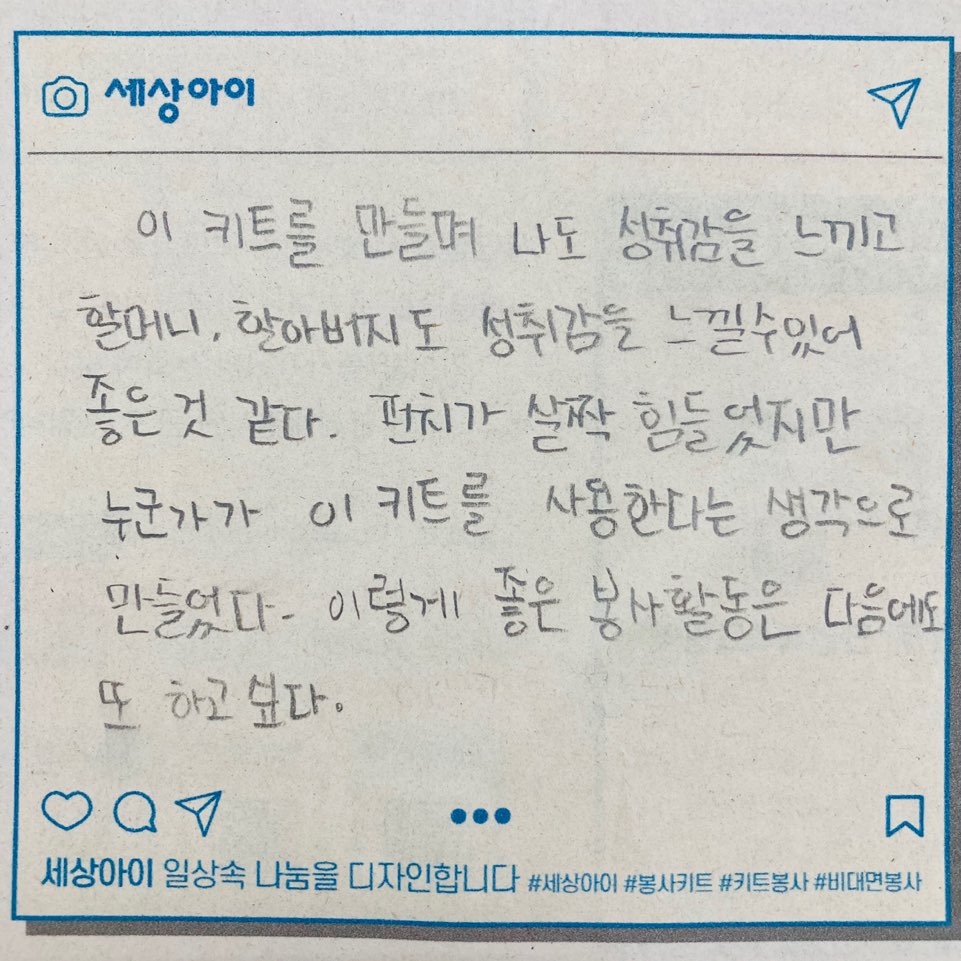 세상아이
이 키트를 만들며 나도 성취감을 느끼고
할머니, 할아버지도 성취감을 느낄수있어
좋은 것 같다. 펀치가 살짝 힘들었지만
누군가가 이 키트를 사용한다는 생각으로
만들었다. 이렇게 좋은 봉사활동은 다음에도
또 하고 싶다.
세상아이 일상속 나눔을 디자인합니다 #세상아이 #봉사키트 #키트봉사 #비대면봉사